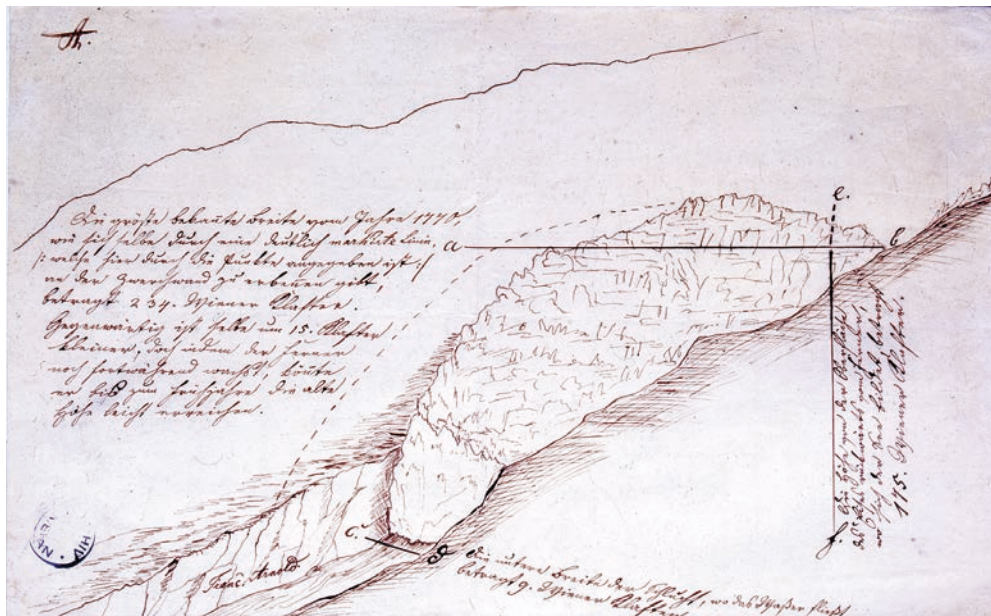 Die größte bekannte Breite vom Jahre 1770,
wie sich selbe durch eine deutlich markirte Linie,
/: welche hier durch die Punkte angegeben ist :/
an der Zwerchwand zu erkennen gibt,
betragt 234. Wiener Klafter.
Gegenwärtig ist selbe um 15. Klafter
kleiner, doch indem der Ferner
noch fortwährend wachst, könnte
er bis zum Frühjahre die alte
Höhe leicht erreichen.
a
b
e.
f.
Die Höhe von der
das Eis rückwärts
wo sich der See bildet betragt
175. Wiener Klafter.
c.
d
Die untere Breite der Schlucht, wo das Wasser fließt
betragt 9. Wiener Klafter.
Franc. Arnold